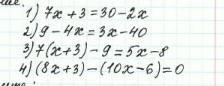 1) 7x + 3 = 30 - 2x
2) 9 - 4x = 3x - 40
3) 7(x + 3) - 9 = 5x - 8
4) (8x + 3) - (10x - 6) = 0